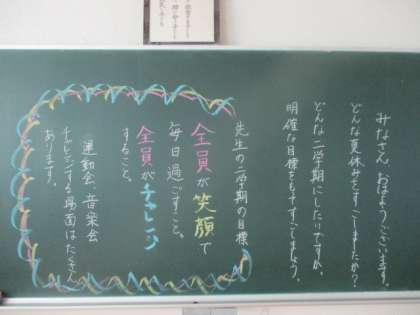 みなさん おはようございます。
どんな夏休みをすごしましたか?
どんな二学期にしたいですか。
明確な目標をもってすごしましょう。
先生の二学期の目標
全員が笑顔で
毎日過ごすこと。
全員がチャレンジ
すること。
運動会、音楽会
チャレンジする場面はたくさん
あります。